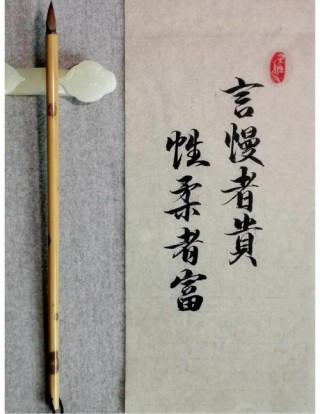 言慢者貴
性柔者富